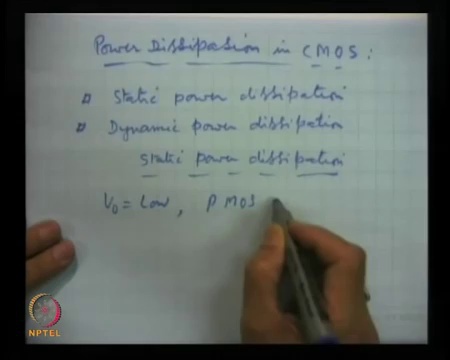 Power Dissipation in CMOS:
Static power dissipation
Dynamic power dissipation
static power dissipation
V0 = Low, PMOS
NPTEL